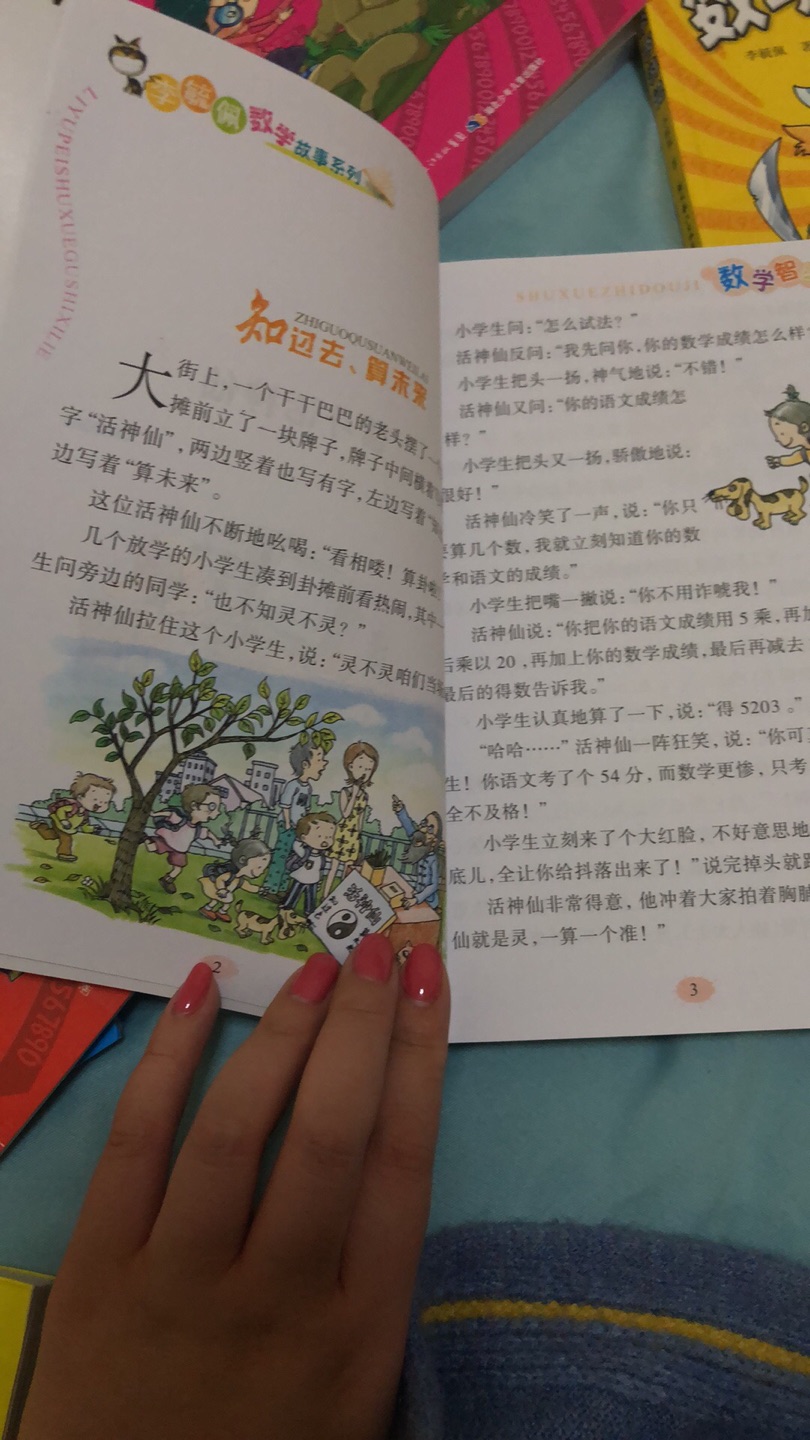 李毓佩数学故事系列
LIYUPEISHUXUEGUSHIXILIE
知过去、算未来
ZHIGUOQUSUANWEILAI
大街上，一个干干巴巴的老头摆了一
摊前立了一块牌子，牌子中间横着
字“活神仙”，两边竖着也写有字，左边写着“
边写着“算未来”。
这位活神仙不断地吆喝：“看相喽！算卦
几个放学的小学生凑到卦摊前看热闹，其中一
生问旁边的同学：“也不知灵不灵？”
活神仙拉住这个小学生，说：“灵不灵咱们当
活神仙
2
数学
李毓佩
SHUXUEZHIDOUJI
数学智
小学生问：“怎么试法？”
活神仙反问：“我先问你，你的数学成绩怎么样
小学生把头一扬，神气地说：“不错！”
活神仙又问：“你的语文成绩怎
样？”
小学生把头又一扬，骄傲地说：
很好！”
活神仙冷笑了一声，说：“你只
要算几个数，我就立刻知道你的数
学和语文的成绩。”
小学生把嘴一撇说：“你不用诈唬我！”
活神仙说：“你把你的语文成绩用 5 乘，再加
后乘以 20，再加上你的数学成绩，最后再减去
最后的得数告诉我。”
小学生认真地算了一下，说：“得 5203 。”
“哈哈……”活神仙一阵狂笑，说：“你可
生！你语文考了个 54 分，而数学更惨，只考
全不及格！”
小学生立刻来了个大红脸，不好意思地
底儿，全让你给抖落出来了！”说完掉头就跑
活神仙非常得意，他冲着大家拍着胸脯
仙就是灵，一算一个准！”
3